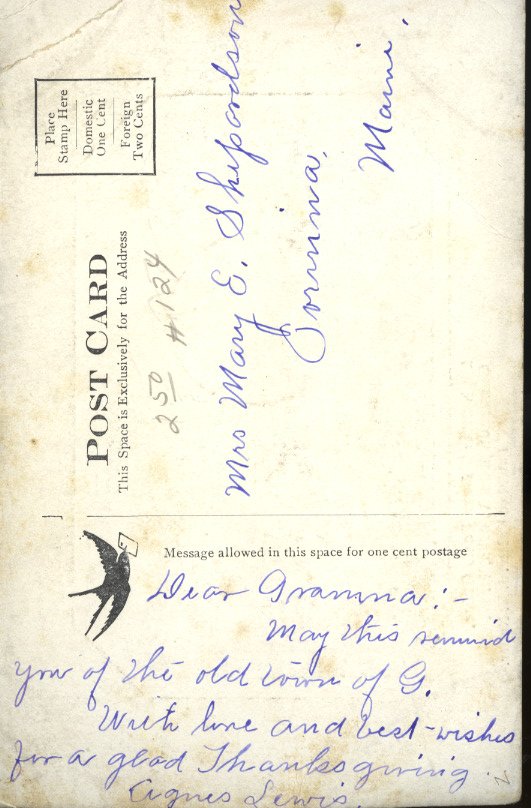 Place
Stamp Here
Domestic
One Cent
Foreign
Two Cents
POST CARD
This Space is Exclusively for the Address
2 50 #124
Mrs Mary E. Shepardson
Corinna,
Maine.
Message allowed in this space for one cent postage
Dear Gramma:-
May this remind
you of the old town of G.
With love and best-wishes
for a glad Thanksgiving.
Agnes Lewis.